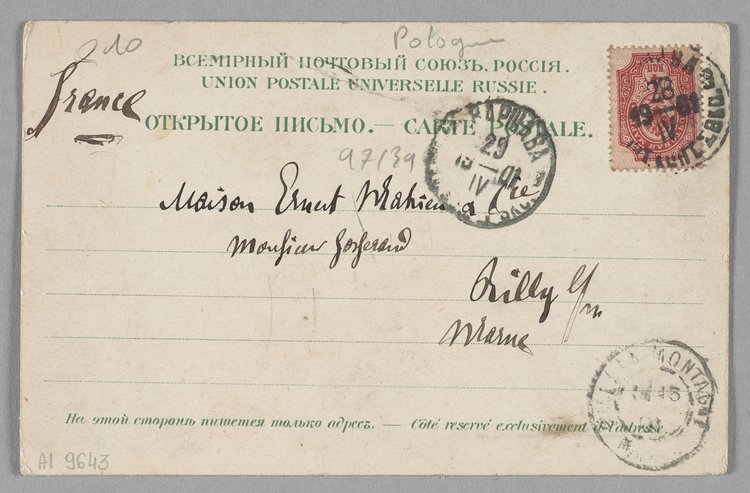 210
Pologne
ВСЕМІРНЫЙ ПОЧТОВЫЙ СОЮЗЪ. РОССІЯ.
UNION POSTALE UNIVERSELLE RUSSIE.
France
ОТКРЫТОЕ ПИСЬМО. — CARTE POSTALE.
28
19 01
IV
ВАРШАВА
29
19 01
IV
97139
Maison Ernest & Cie
Monsieur
Rilly
Marne
LA MONTAGNE
На этой сторонѣ пишется только адресъ. — Côté réservé exclusivement à l'adresse.
AI 9643